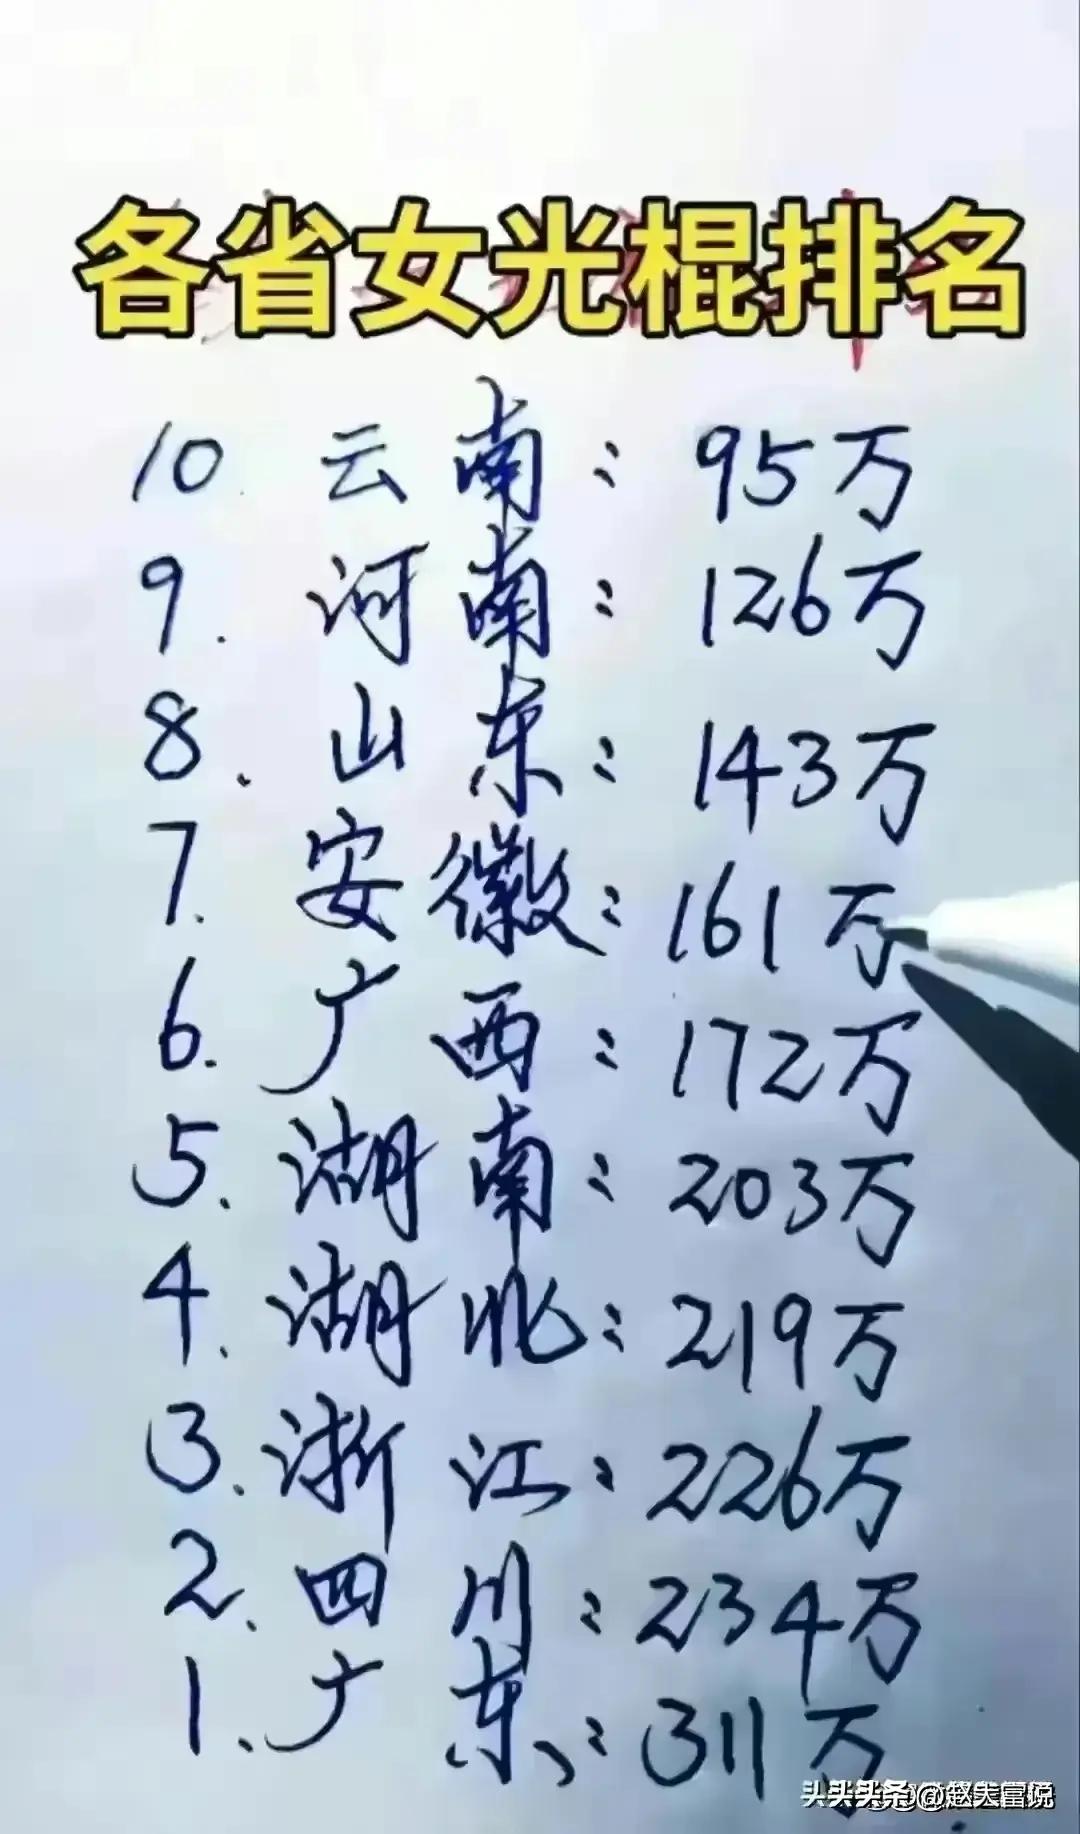 各省女光棍排名
10. 云南: 95万
9. 河南: 126万
8. 山东: 143万
7. 安徽: 161万
6. 广西: 172万
5. 湖南: 203万
4. 湖北: 219万
3. 浙江: 226万
2. 四川: 234万
1. 广东: 311万
头条 @赵夫富说